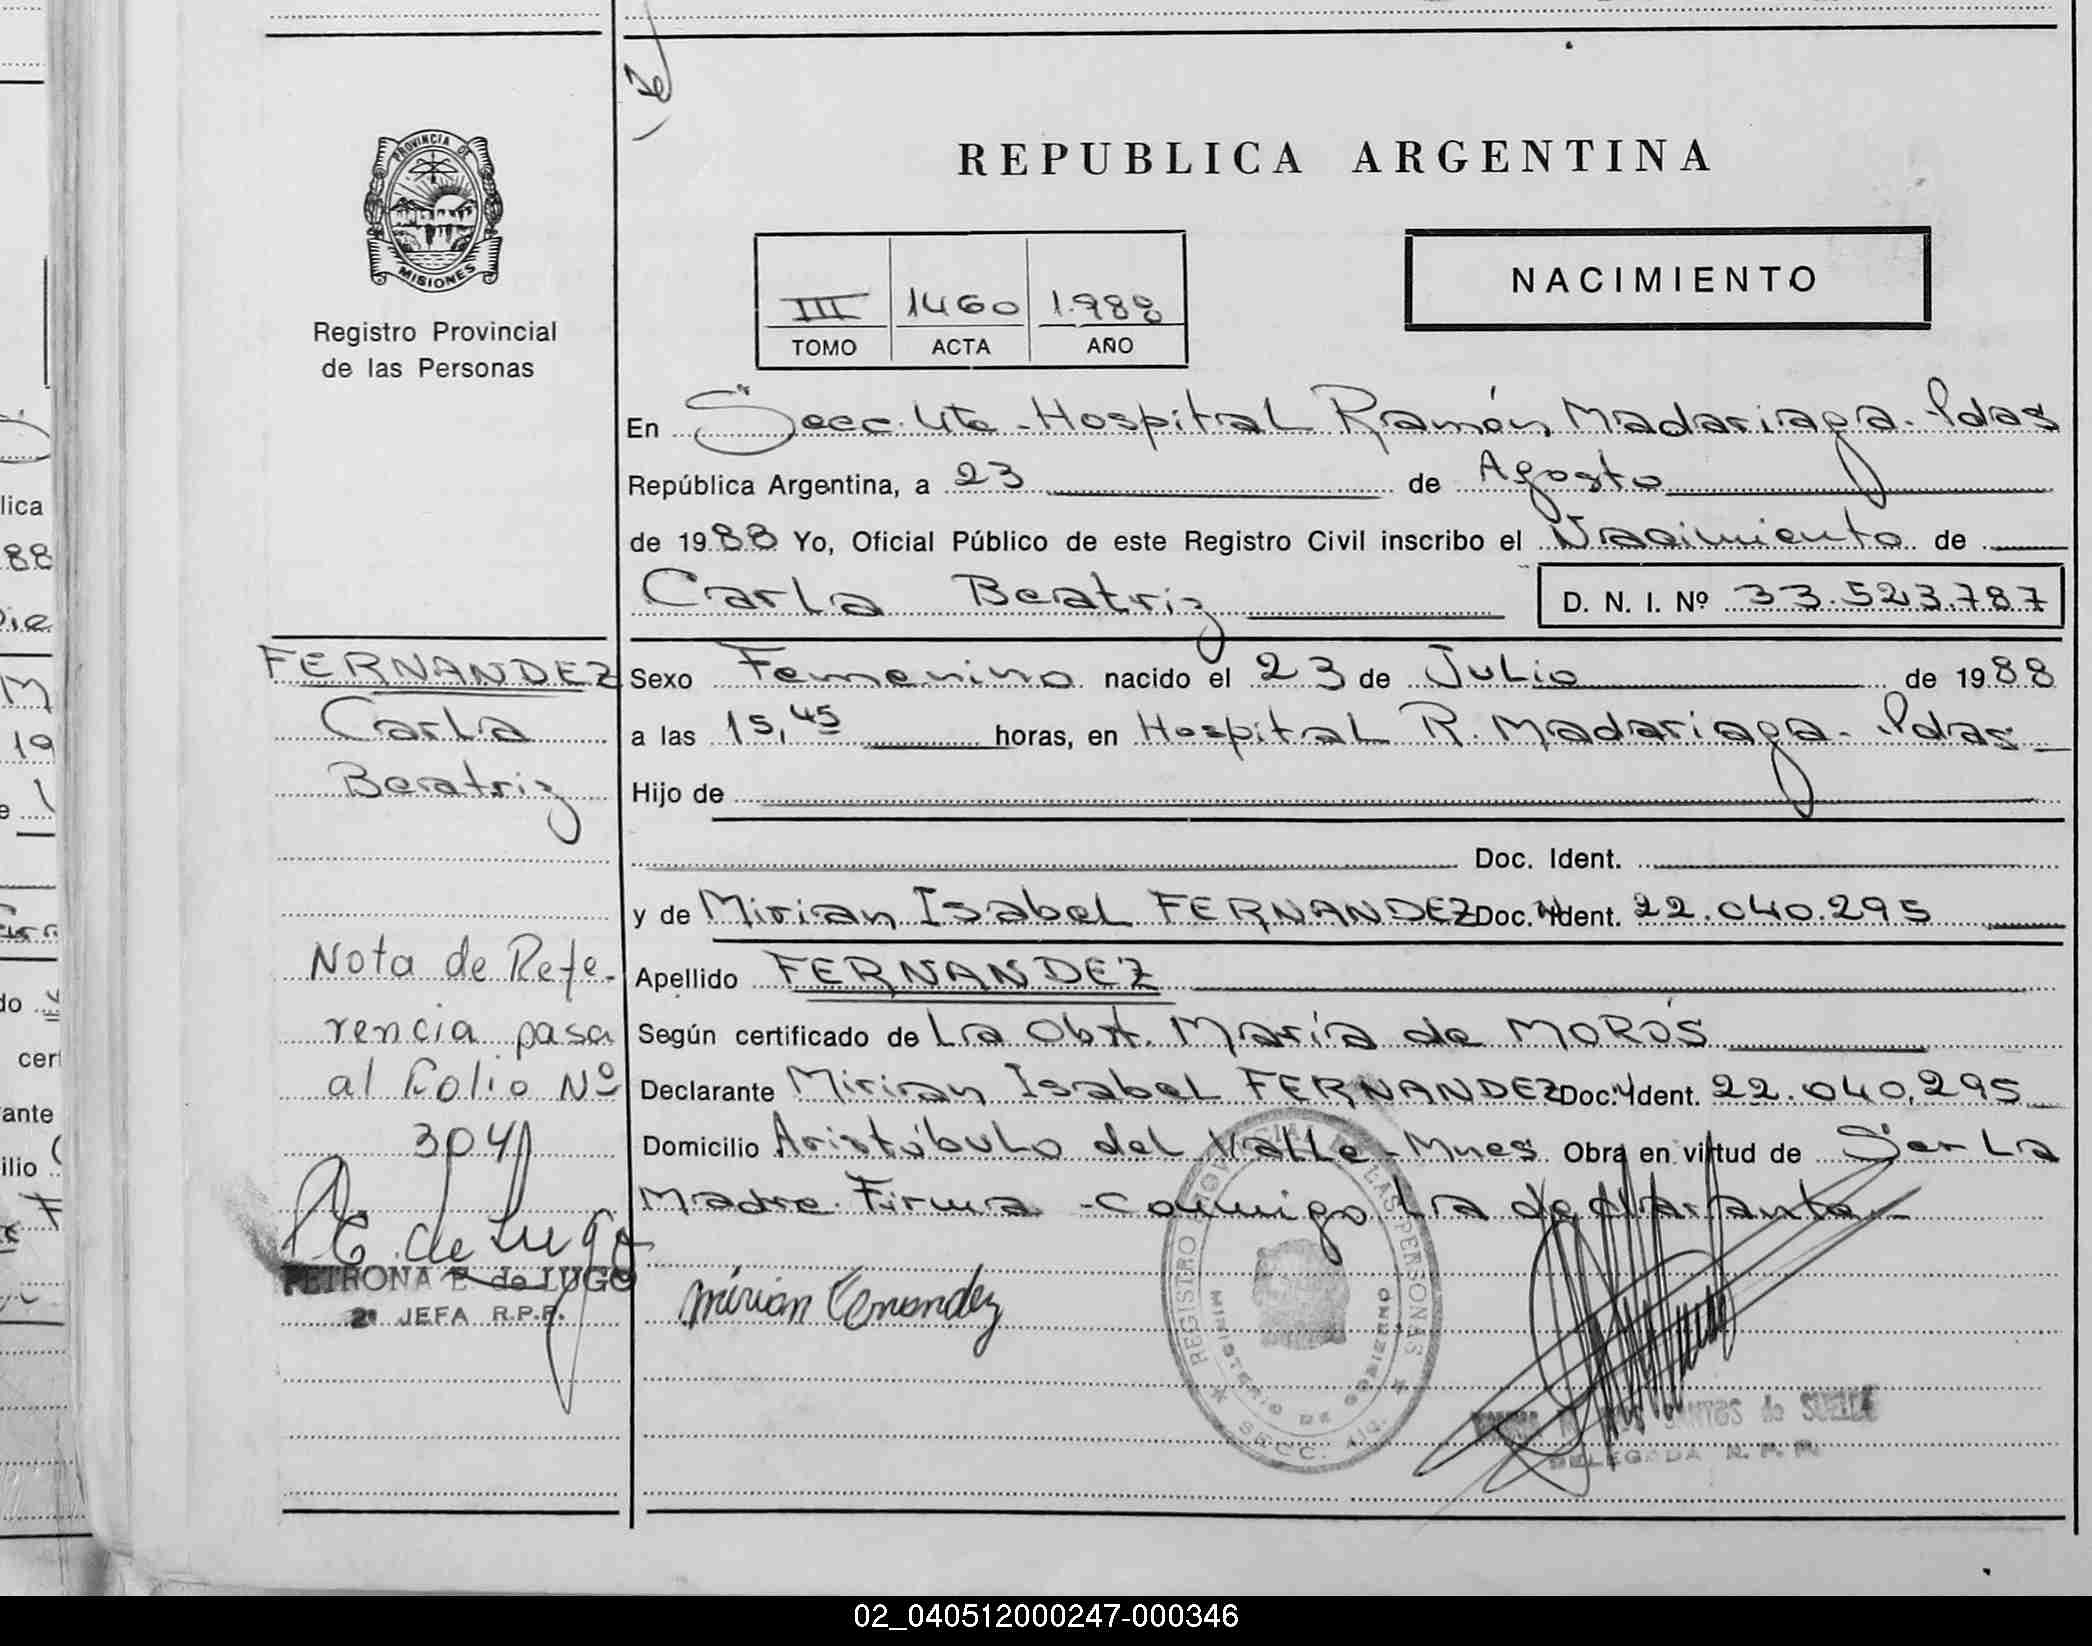 PROVINCIA DE
MISIONES
Registro Provincial
de las Personas
FERNANDEZ
Carla
Beatriz
Nota de Refe-
rencia pasa
al Folio Nº
304
P.E. de Lugo
PETRONA E. de LUGO
2ª JEFA R.P.P.
REPUBLICA ARGENTINA
III 1460 1.988
TOMO ACTA AÑO
NACIMIENTO
En Secc. 4ta - Hospital Ramón Madariaga - Pdas
República Argentina, a 23 de Agosto
de 1988 Yo, Oficial Público de este Registro Civil inscribo el Nacimiento de
Carla Beatriz D. N. I. Nº 33.523.787
Sexo Femenino nacido el 23 de Julio de 1988
a las 15,45 horas, en Hospital R. Madariaga - Pdas -
Hijo de
Doc. Ident.
y de Mirian Isabel FERNANDEZ Doc. Ident. 22.040.295
Apellido FERNANDEZ
Según certificado de La Obst. María de MOROS
Declarante Mirian Isabel FERNANDEZ Doc. Ident. 22.040.295
Domicilio Aristóbulo del Valle - Mnes Obra en virtud de Ser La
Madre. Firma - Conmigo La declarante -
Mirian Fernandez
REGISTRO PROVINCIAL DE LAS PERSONAS
MINISTERIO DE GOBIERNO
SECC. 4ta.
SANTOS de
DELEGADA R. P. P.
02_040512000247-000346